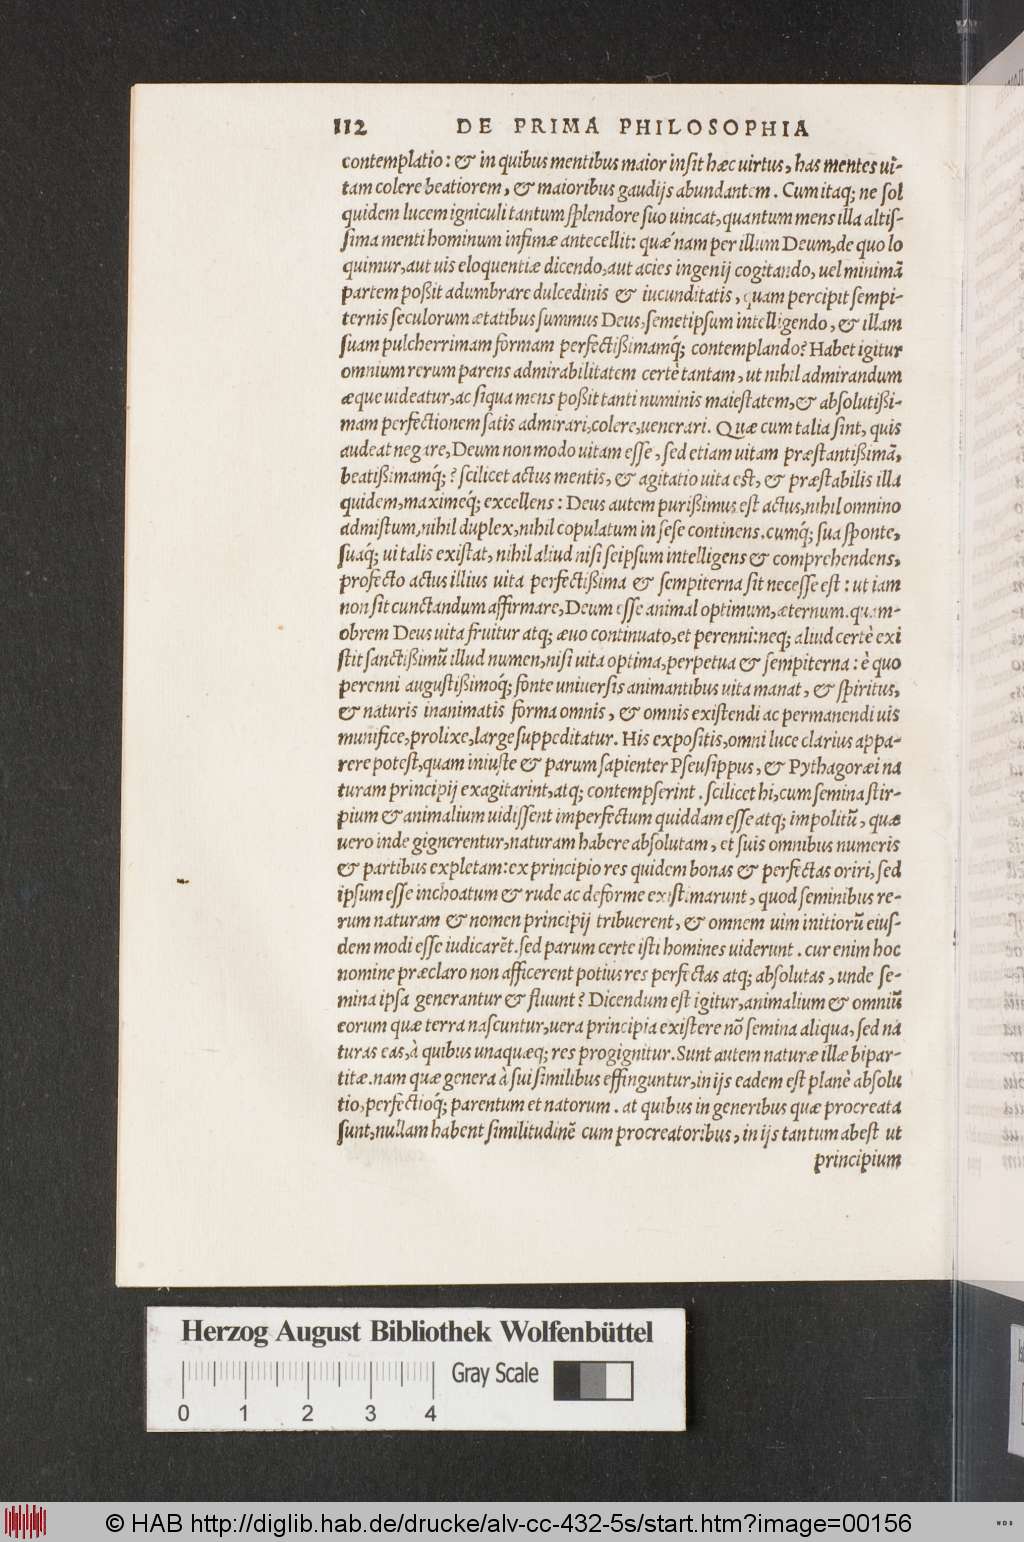 112 DE PRIMA PHILOSOPHIA
contemplatio: & in quibus mentibus maior insit hæc uirtus, has mentes ui-
tam colere beatiorem, & maioribus gaudijs abundantem. Cum itaq; ne sol
quidem lucem igniculi tantum splendore suo uincat, quantum mens illa altis-
sima menti hominum infimæ antecellit: quæ nam per illum Deum, de quo lo
quimur, aut uis eloquentiæ dicendo, aut acies ingenij cogitando, uel minimã
partem poßit adumbrare dulcedinis & iucunditatis, quam percipit sempi-
ternis seculorum ætatibus summus Deus, semetipsum intelligendo, & illam
suam pulcherrimam formam perfectißimamq́; contemplando? Habet igitur
omnium rerum parens admirabilitatem certè tantam, ut nihil admirandum
æque uideatur, ac siqua mens poßit tanti numinis maiestatem, & absolutißi-
mam perfectionem satis admirari, colere, uenerari. Quæ cum talia sint, quis
audeat negare, Deum non modo uitam esse, sed etiam uitam præstantißimã,
beatißimamq́;? scilicet actus mentis, & agitatio uita est, & præstabilis illa
quidem, maximeq́; excellens: Deus autem purißimus est actus, nihil omnino
admistum, nihil duplex, nihil copulatum in sese continens. cumq́; sua sponte,
suaq́; ui talis existat, nihil aliud nisi seipsum intelligens & comprehendens,
profecto actus illius uita perfectißima & sempiterna sit necesse est: ut iam
non sit cunctandum affirmare, Deum esse animal optimum, æternum. quam-
obrem Deus uita fruitur atq; æuo continuato, et perenni: neq; aliud certè exi
stit sanctißimũ illud numen, nisi uita optima, perpetua & sempiterna: è quo
perenni augustißimoq́; fonte uniuersis animantibus uita manat, & spiritus,
& naturis inanimatis forma omnis, & omnis existendi ac permanendi uis
munifice, prolixe, large suppeditatur. His expositis, omni luce clarius appa-
rere potest, quam iniuste & parum sapienter Pseusippus, & Pythagoræi na
turam principij exagitarint, atq; contempserint. scilicet hi, cum semina stir-
pium & animalium uidissent imperfectum quiddam esse atq; impolitũ, quæ
uero inde gignerentur, naturam habere absolutam, et suis omnibus numeris
& partibus expletam: ex principio res quidem bonas & perfectas oriri, sed
ipsum esse inchoatum & rude ac deforme existimarunt, quod seminibus re-
rum naturam & nomen principij tribuerent, & omnem uim initiorũ eius-
dem modi esse iudicarẽt. sed parum certe isti homines uiderunt. cur enim hoc
nomine præclaro non afficerent potius res perfectas atq; absolutas, unde se-
mina ipsa generantur & fluunt? Dicendum est igitur, animalium & omniũ
eorum quæ terra nascuntur, uera principia existere nõ semina aliqua, sed na
turas eas, à quibus unaquæq; res progignitur. Sunt autem naturæ illæ bipar-
titæ. nam quæ genera à sui similibus effinguntur, in ijs eadem est planè absolu
tio, perfectioq́; parentum et natorum. at quibus in generibus quæ procreata
sunt, nullam habent similitudinẽ cum procreatoribus, in ijs tantum abest ut
principium
Herzog August Bibliothek Wolfenbüttel
Gray Scale
0 1 2 3 4
© HAB http://diglib.hab.de/drucke/alv-cc-432-5s/start.htm?image=00156